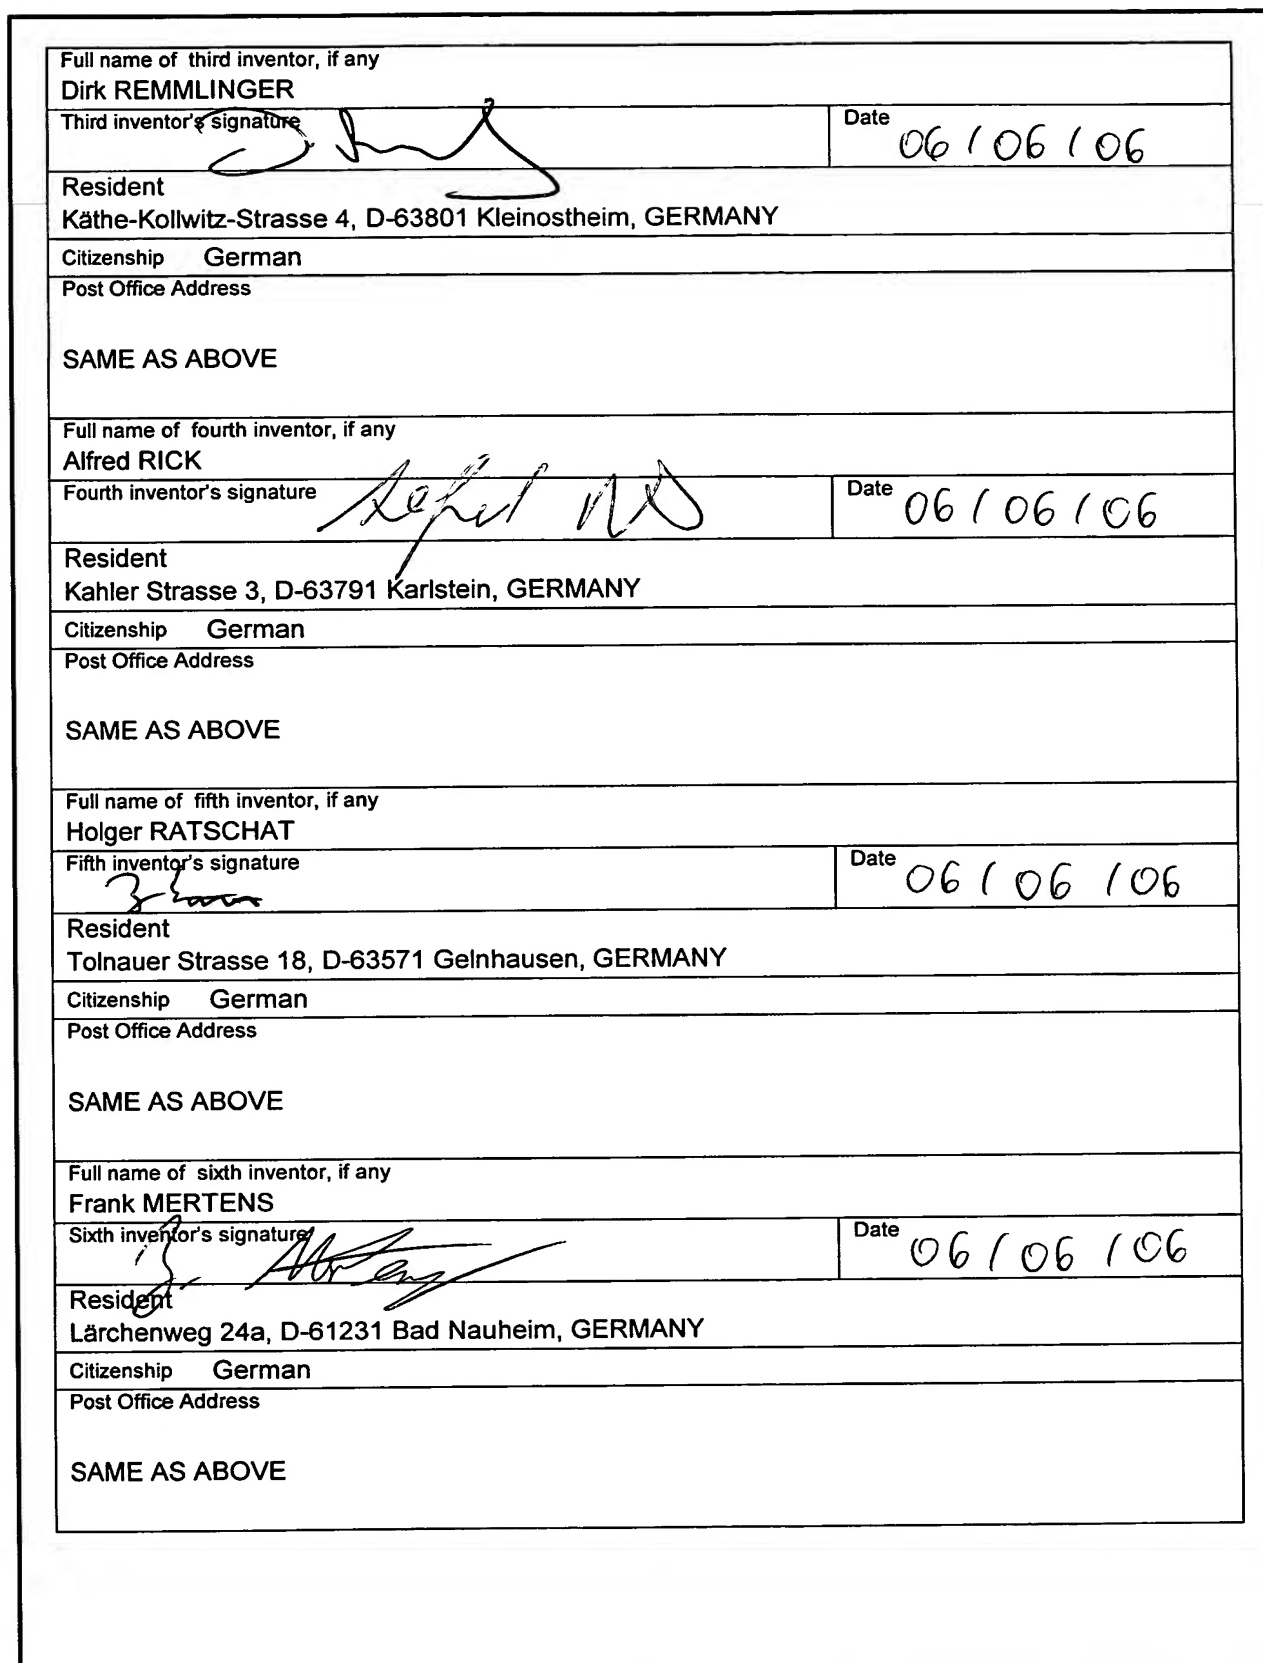 Full name of third inventor, if any
Dirk REMMLINGER
Third inventor's signature
Date 06/06/06
Resident
Käthe-Kollwitz-Strasse 4, D-63801 Kleinostheim, GERMANY
Citizenship German
Post Office Address
SAME AS ABOVE
Full name of fourth inventor, if any
Alfred RICK
Fourth inventor's signature
Date 06/06/06
Resident
Kahler Strasse 3, D-63791 Karlstein, GERMANY
Citizenship German
Post Office Address
SAME AS ABOVE
Full name of fifth inventor, if any
Holger RATSCHAT
Fifth inventor's signature
Date 06/06/06
Resident
Tolnauer Strasse 18, D-63571 Gelnhausen, GERMANY
Citizenship German
Post Office Address
SAME AS ABOVE
Full name of sixth inventor, if any
Frank MERTENS
Sixth inventor's signature
Date 06/06/06
Resident
Lärchenweg 24a, D-61231 Bad Nauheim, GERMANY
Citizenship German
Post Office Address
SAME AS ABOVE